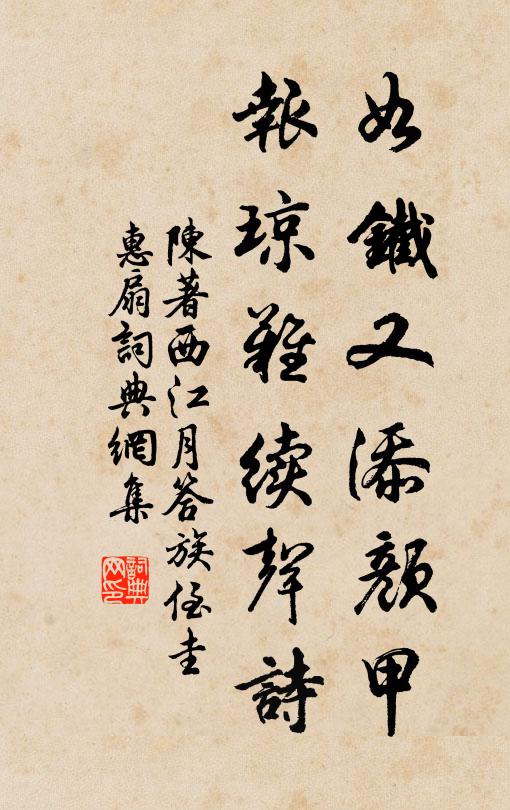 如鐵又添顏甲
報琼難續聲詩
陳著西江月答族侄圭
惠扇詞典網集
詞典
网印